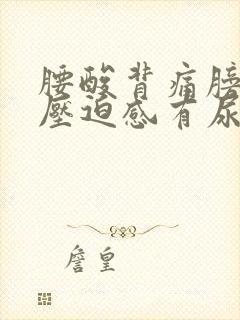 腰酸背痛膀
壓迫感有尿
詹皇